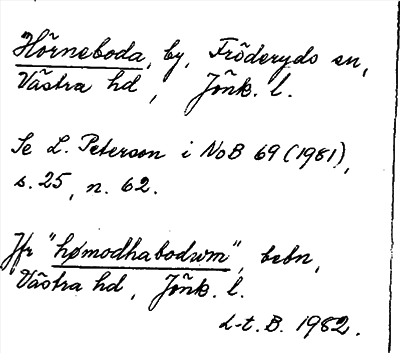 Hörneboda, by, Fröderyds sn,
Västra hd, Jönk. l.
Se L. Peterson i NoB 69 (1981),
s. 25, n. 62.
Jfr "hømodhabodum", bebn,
Västra hd, Jönk. l.
L-t. B. 1982.